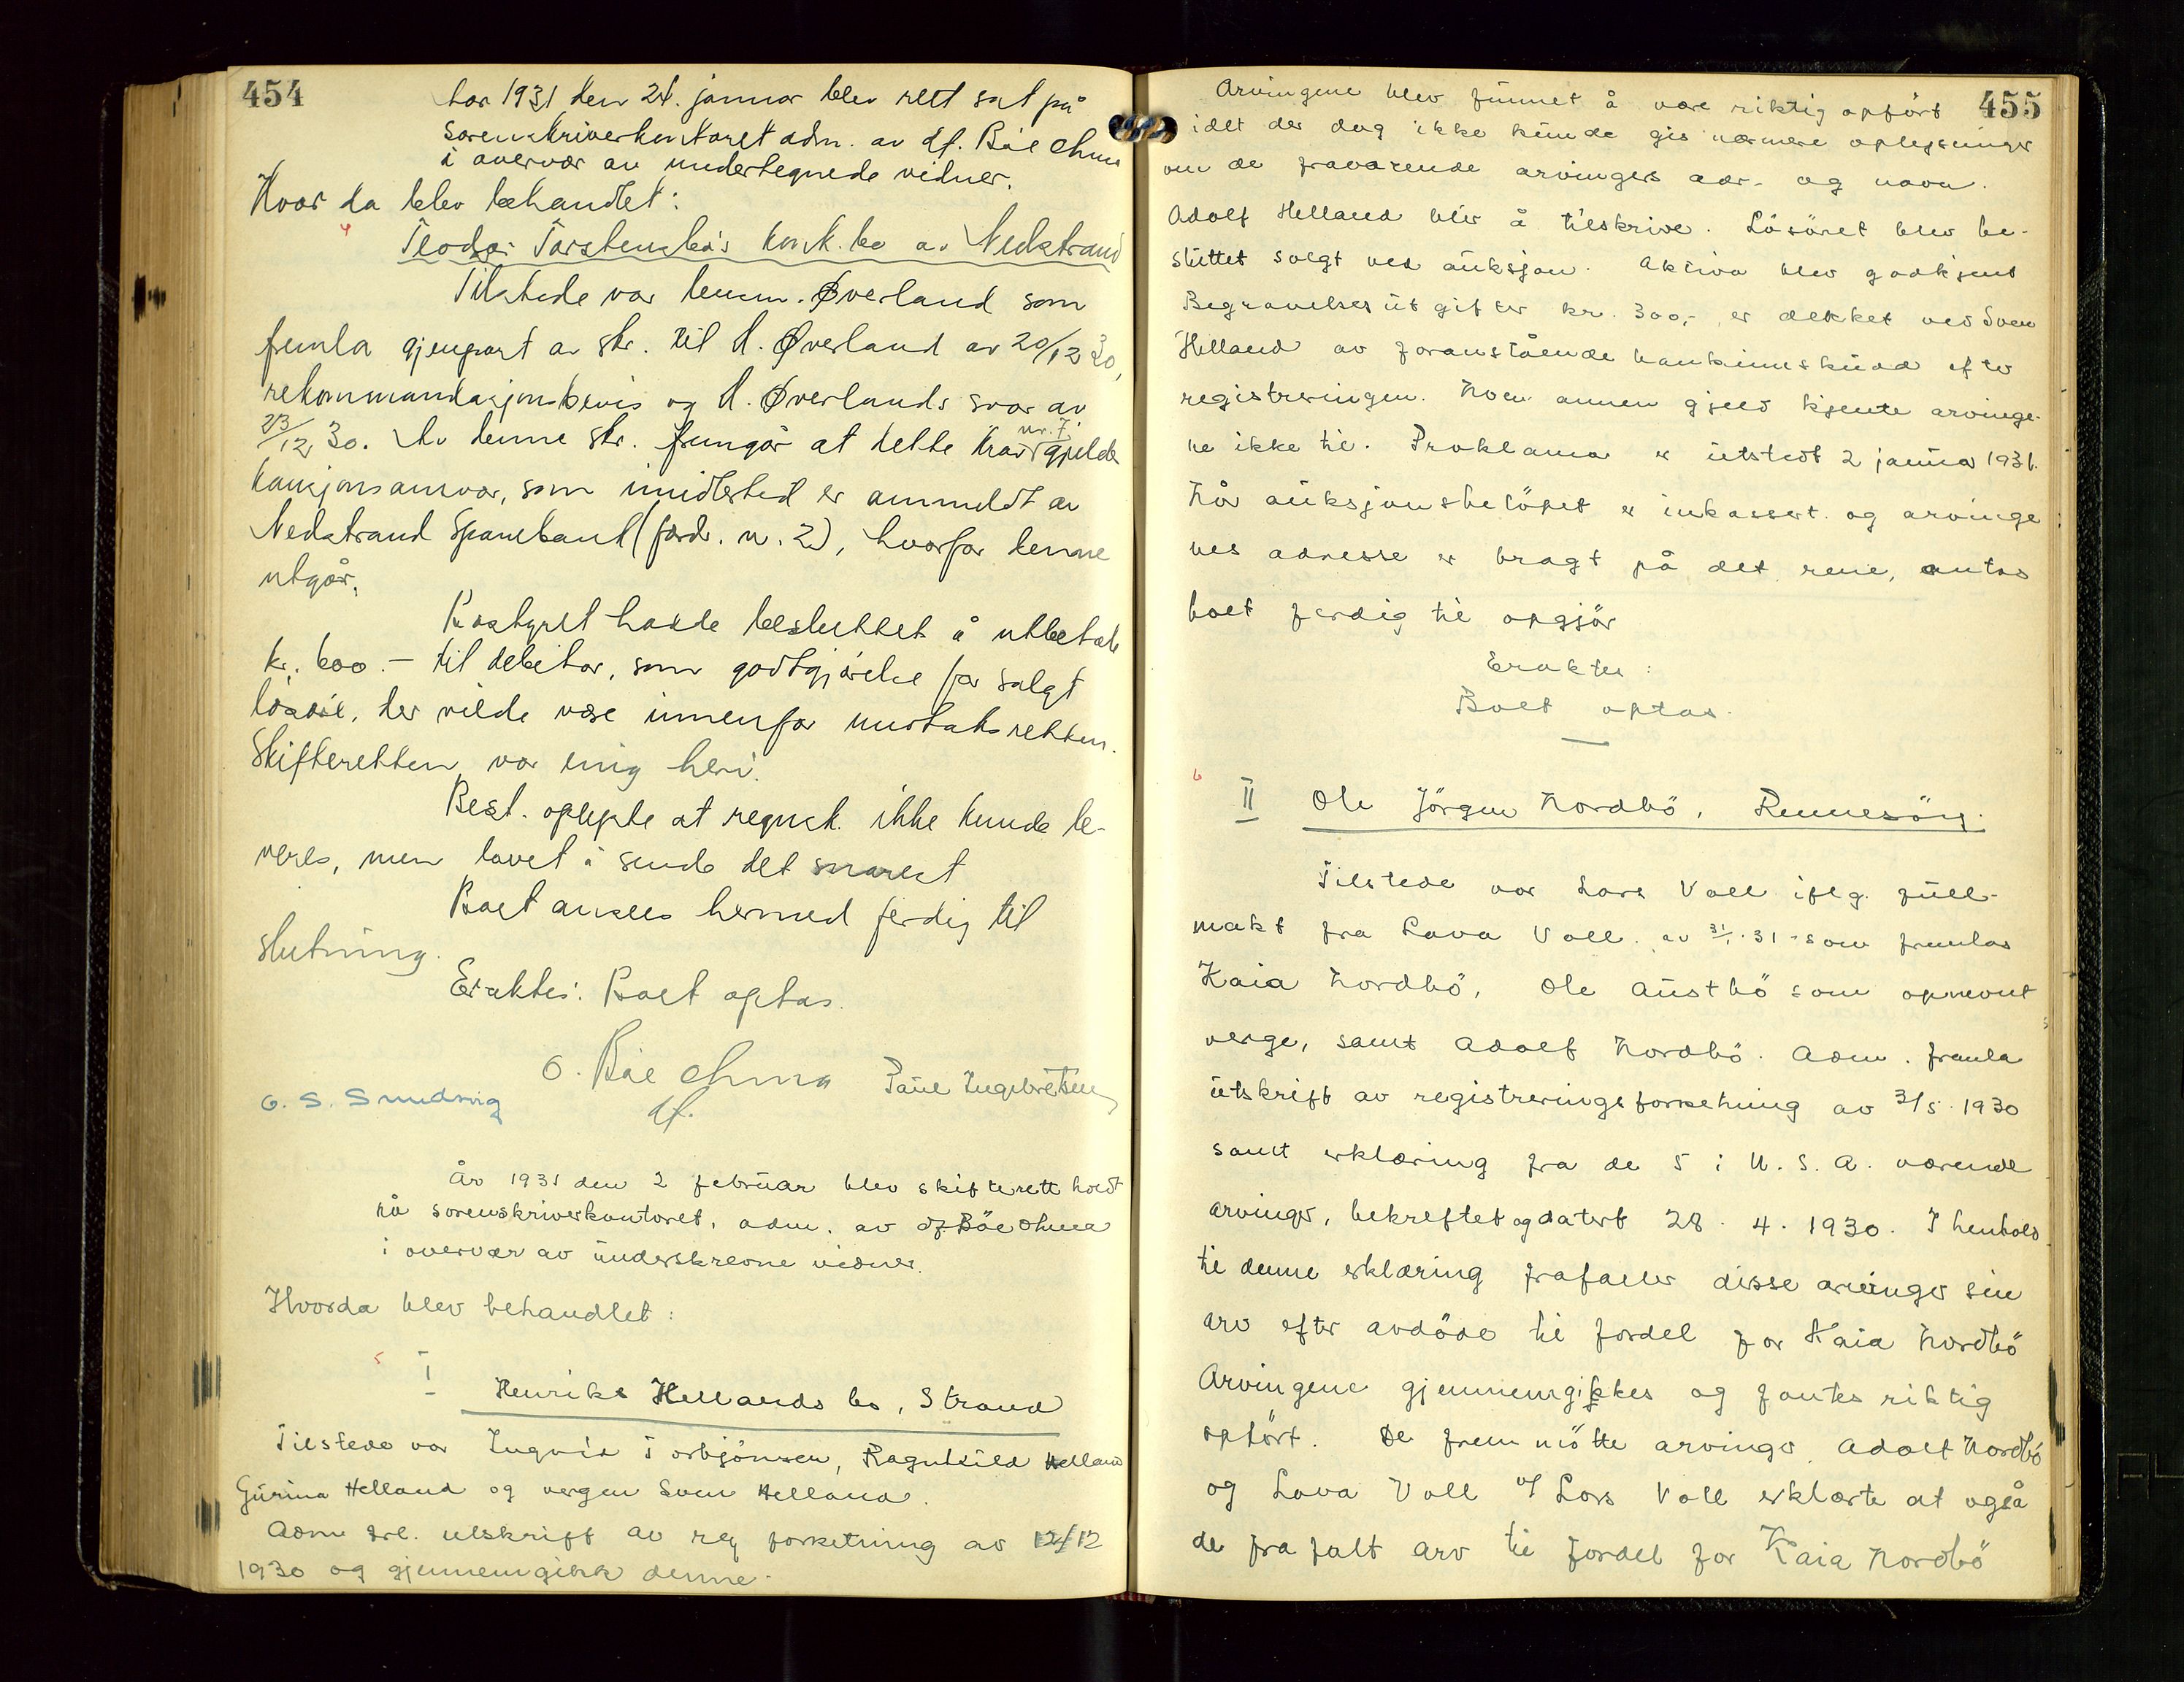 454
År 1931 den 24. januar blev rett sat på
sorenskriverkontoret adm. av df. Bøe Ohma
i overvær av undertegnede vidner.
Hvor da blev behandlet:
4
Teodor Torstensbø's konk.bo av Nedstrand
Tilstede var lensm. Øverland som
fremla gjenpart av skr. til H. Øverland av 20/12 30,
rekommandasjonsbevis og H. Øverlands svar av
23/12 30. Av denne skr. fremgår at dette krav nr. 7 gjelder
kausjonsansvar, som imidlertid er anmeldt av
Nedstrand Sparebank (ford. nr. 2), hvorfor denne
utgår.
Bostyret hadde besluttet å utbetale
kr. 600.– til debitor, som godtgjørelse for solgt
løsøre, der vilde være innenfor undtaksretten.
Skifteretten var enig heri.
Best. oplyste at regnsk. ikke kunde le-
veres, men lovet å sende det snarest
Boet ansees hermed ferdig til
slutning.
Eraktes: Boet optas.
O. Bøe Ohma
df.
Paul Ingebretsen
G. S. Sundsvig
År 1931 den 2 februar blev skifterett holdt
på sorenskriverkontoret, adm. av df. Böe Ohma
i overvær av underskrevne vidner.
Hvorda blev behandlet:
5
I
Henriks Hellands bo, Strand
Tilstede var Ingvid Torbjönsen, Ragnhild Helland
Gurina Helland og vergen Sven Helland.
Adm frl. utskrift av reg forretning av 12/12
1930 og gjennemgikk denne.
455
Arvingene blev funnet å være riktig opfört
idet der dog ikke kunde gis nærmere oplysninger
om de fraværende arvingers adr. og navn.
Adolf Helland blir å tilskrive. Lösöret blev be-
sluttet solgt ved auksjon. Aktiva blev godkjent
Begravelsesutgifter kr. 300,- er dekket ved Sven
Helland av foranstående bankinnskudd efter
registreringen. Noen annen gjeld kjente arvinge-
ne ikke til. Proklama er utstedt 2 januar 1931.
Når auksjonsbelöpet er inkassert og arvinge
nes adresse er bragt på det rene, antas
boet ferdig til opgjör
Eraktes:
Boet optas.
6
II
Ole Jörgen Nordbö, Rennesöy.
Tilstede var Lars Voll iflg. full-
makt fra Lava Voll av 31/1 31 som fremlas
Kaia Nordbö, Ole Austbö som opnevnt
verge, samt Adolf Nordbö. Adm. fremla
utskrift av registreringsforretning av 3/5 1930
samt erklæring fra de 5 i U.S.A. værende
arvinger, bekreftet og datert 28. 4. 1930. I henhold
til denne erklæring frafaller disse arvinger sin
arv efter avdöde til fordel for Kaia Nordbö
Arvingene gjennemgikkes og fantes riktig
opfört. De fremmötte arvinger Adolf Nordbö
og Lava Voll v/ Lars Voll erklærte at også
de frafalt arv til fordel for Kaia Nordbö